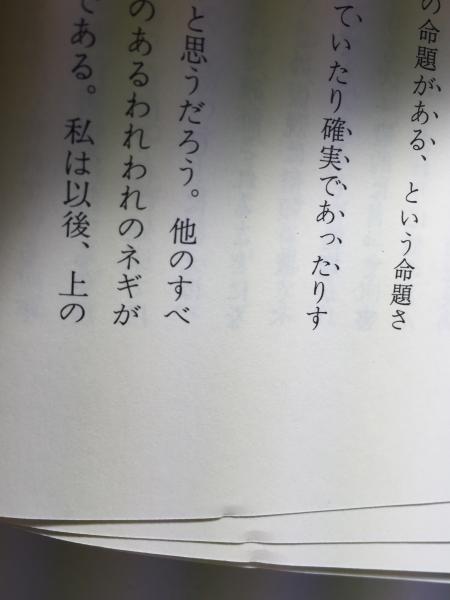 の命題がある、という命題さ
ていたり確実であったりす
と思うだろう。他のすべ
のあるわれわれのネギが
である。私は以後、上の